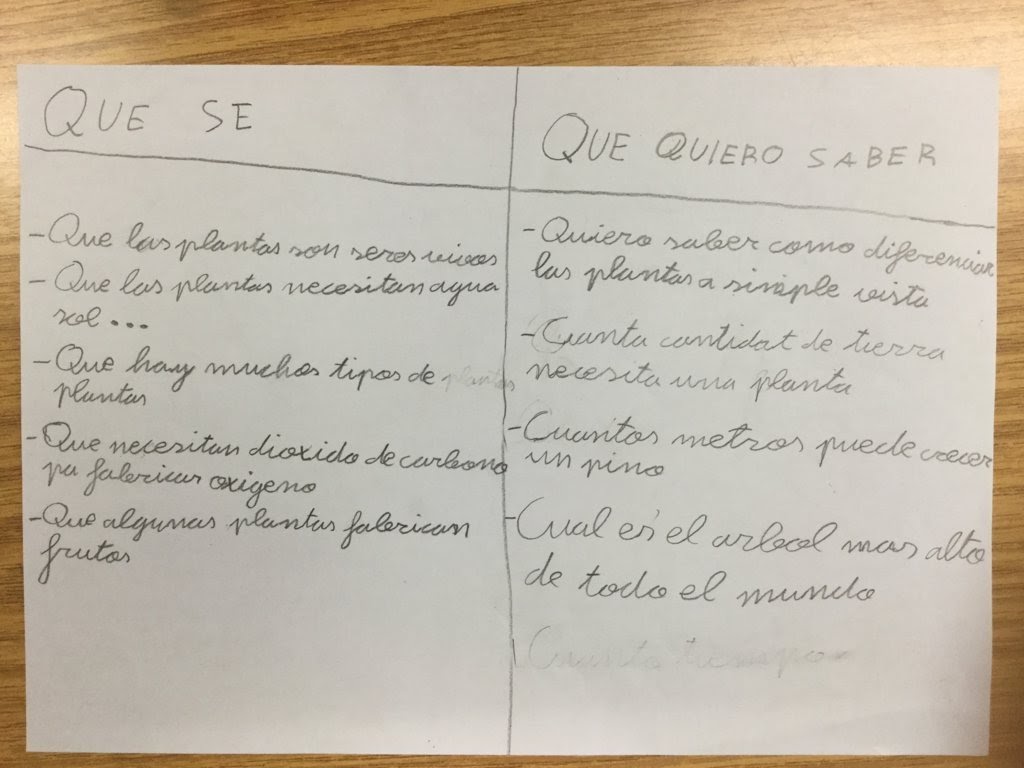 QUE SE
- Que las plantas son seres vivos
- Que las plantas necesitan agua
sol ...
- Que hay muchos tipos de plantas
plantas
- Que necesitan dioxido de carbono
pa fabricar oxigeno
- Que algunas plantas fabrican
frutos
QUE QUIERO SABER
- Quiero saber como diferenciar
las plantas a simple vista
- Cuanta cantidat de tierra
necesita una planta
- Cuantos metros puede crecer
un pino
- Cual es el arbol mas alto
de todo el mundo
Cuanto tiempo